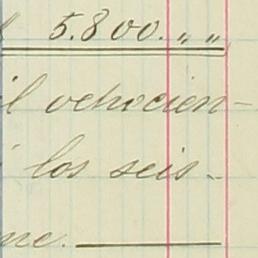 5.800. „ „
il ochocien-
los seis-
me.